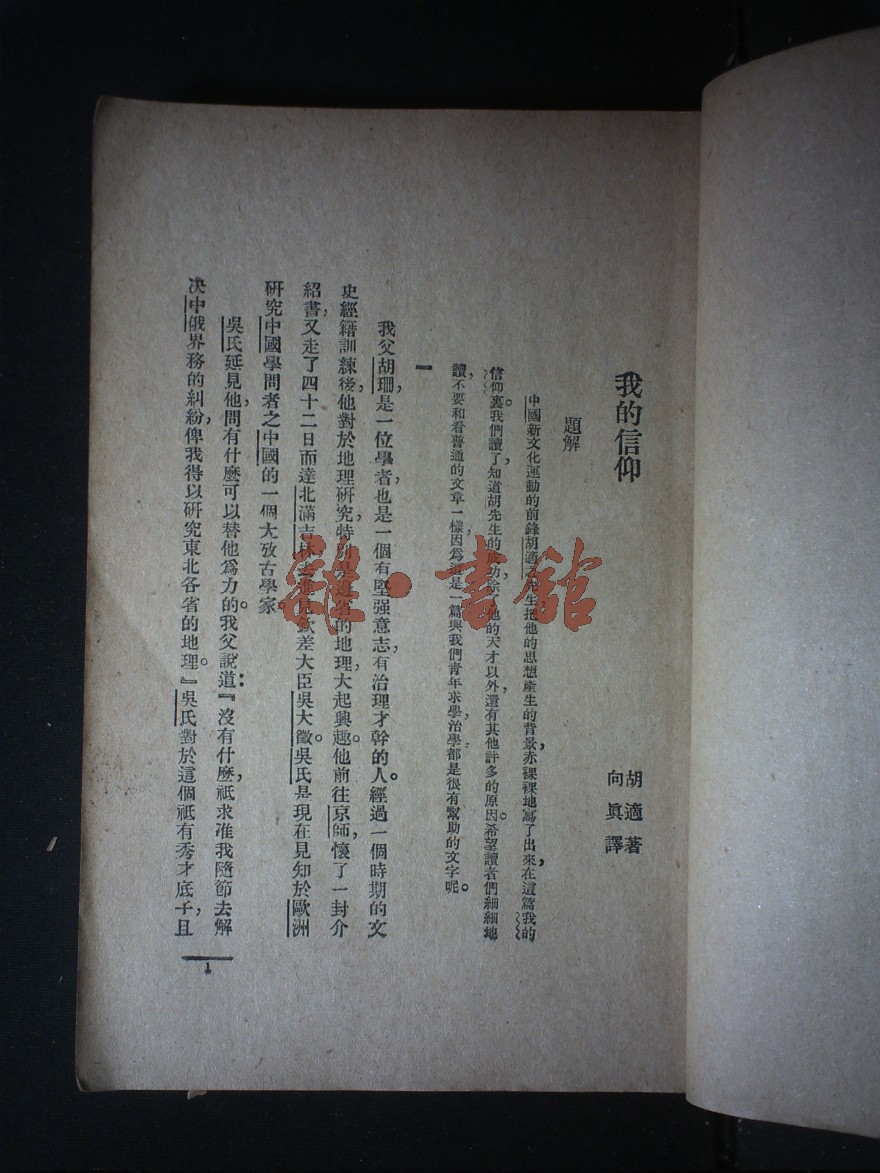 我的信仰
胡適著
向眞譯
題解
中國新文化運動的前鋒胡適之先生把他的思想產生的背景，赤裸裸地寫了出來，在這篇我的
信仰裏。我們讀了，知道胡先生的成功，除了他的天才以外，還有其他許多的原因。希望讀者們細細地
讀，不要和看普通的文章一樣，因爲這是一篇與我們青年求學治學都是很有幫助的文字呢。
一
我父胡珊，是一位學者，也是一個有堅强意志，有治理才幹的人。經過一個時期的文
史經籍訓練後，他對於地理研究，特別是邊省的地理，大起興趣。他前往京師，懷了一封介
紹書，又走了四十二日而達北滿吉林，去進見欽差大臣吳大徵。吳氏是現在見知於歐洲
研究中國學問者之中國的一個大攷古學家。
吳氏延見他，問有什麽可以替他爲力的。我父說道：『沒有什麽，祇求准我隨節去解
决中俄界務的糾紛，俾我得以研究東北各省的地理。』吳氏對於這個祇有秀才底子，且
1
雜·書館